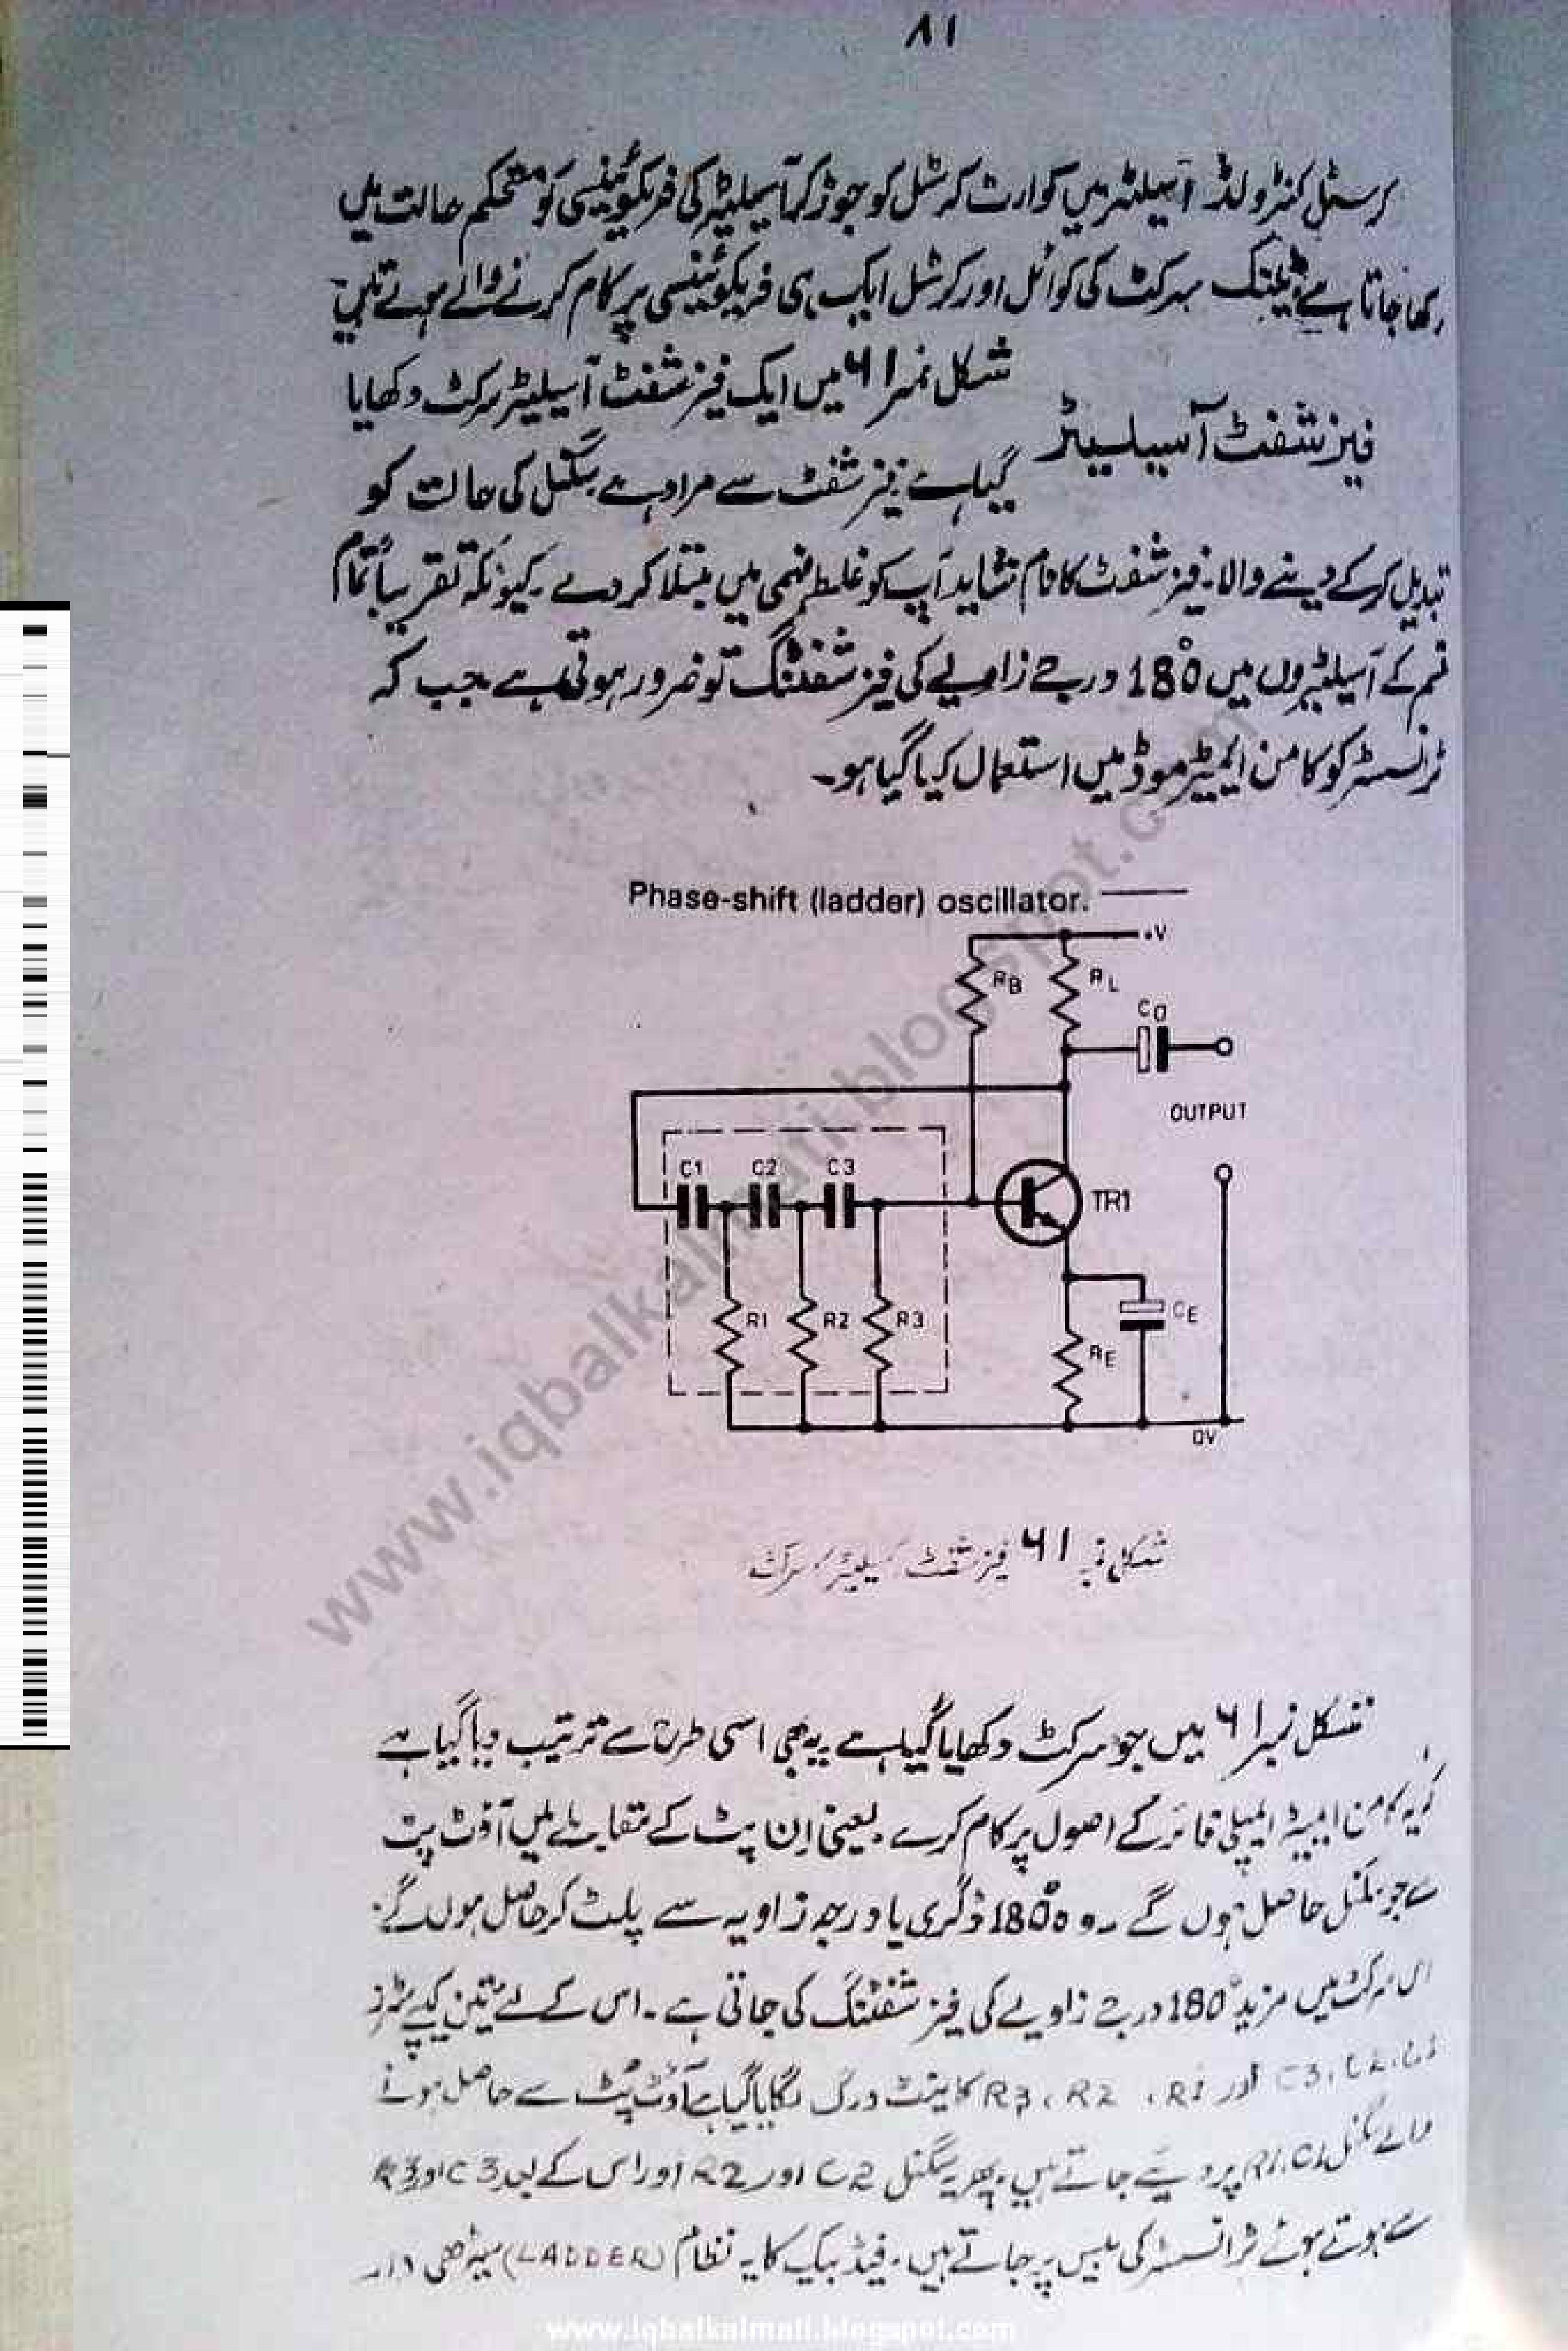 ۸۱
کرسٹل کنٹرولڈ آسیلیٹر میں کوارٹ کرسٹل کو جوڑ کر آسیلیٹر کی فریکوئینسی کو مستحکم حالت میں
رکھا جاتا ہے ٹیننگ سرکٹ کی کوائل اور کرسٹل ایک ہی فریکوئینسی پر کام کرنے والے ہوتے ہیں
فیز شفٹ آسیلیٹر
شکل نمبر ۶۱ میں ایک فیز شفٹ آسیلیٹر سرکٹ دکھایا
گیا ہے فیز شفٹ سے مراد ہے سگنل کی حالت کو
تبدیل کر کے دینے والا۔ فیز شفٹ کا نام شاید آپ کو غلط فہمی میں مبتلا کر دے۔ کیونکہ تقریباً تمام
قسم کے آسیلیٹروں میں 180° درجے زاویے کی فیز شفٹنگ تو ضرور ہوتی ہے جب کہ
ٹرانسسٹر کو کامن ایمیٹر موڈ میں استعمال کیا گیا ہو۔
Phase-shift (ladder) oscillator.
+V
RB
RL
CO
OUTPUT
C1 C2 C3
TR1
R1 R2 R3
CE
RE
0V
شکل نمبر ۶۱ فیز شفٹ آسیلیٹر سرکٹ
شکل نمبر ۶۱ میں جو سرکٹ دکھایا گیا ہے یہ بھی اسی طرح سے ترتیب دیا گیا ہے
کہ یہ کامن ایمیٹر ایمپلی فائر کے اصول پر کام کرے۔ یعنی اِن پٹ کے مقابلے میں آؤٹ پٹ
سے جو سگنل حاصل ہوں گے۔ وہ 180° ڈگری یا درجہ زاویہ سے پلٹ کر حاصل ہوں گے۔
اس سرکٹ میں مزید 180° درجے زاویے کی فیز شفٹنگ کی جاتی ہے۔ اس کے لئے تین کیپسٹرز
C3، C2، C1 اور R3، R2، R1 کا نیٹ ورک لگایا گیا ہے آؤٹ پٹ سے حاصل ہونے
والے سگنل R1، C1 پر دیئے جاتے ہیں۔ پھر یہ سگنل C2 اور R2 اور اس کے بعد C3 اور R3
سے ہوتے ہوئے ٹرانسسٹر کی بیس پر جاتے ہیں۔ فیڈ بیک کا یہ نظام (LADDER) سیڑھی دار
www.iqbalkalmati.blogspot.com
www.iqbalkalmati.blogspot.com